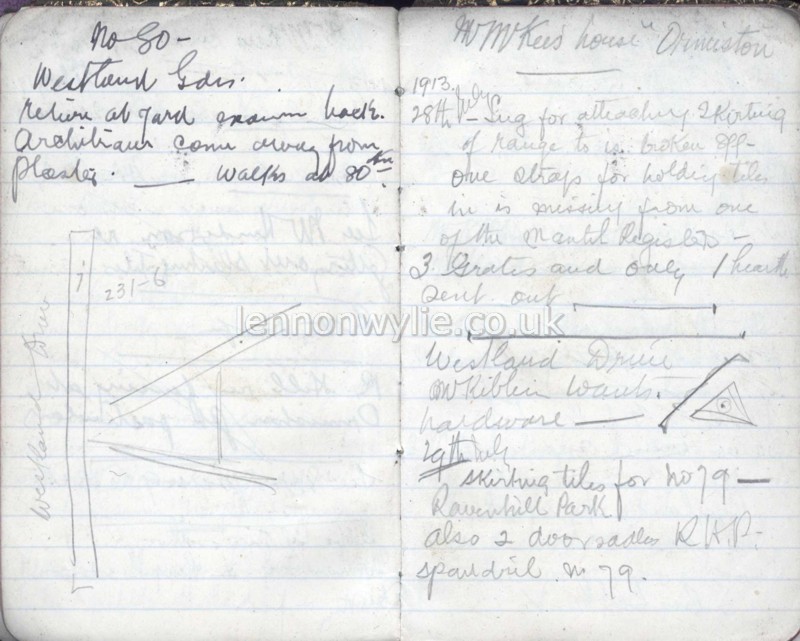 No 80 -
Westland Gdns.
return at yard room back.
Architraves come away from
plaster. — Walks at 80
Westland Drive
231-6
Mr McKee's house Ormiston
1913.
28th July - Lug for attaching skirting
of range to is broken off -
one straps for holding tiles
in is missing from one
of the Mantel Registers -
3 Grates and only 1 hearth
sent out
Westland Drive
McKibbin wants
hardware —
29th July
skirting tiles for No 79 —
Ravenhill Park
also 2 door sadles R.H.P. -
spandril No 79.
lennonwylie.co.uk